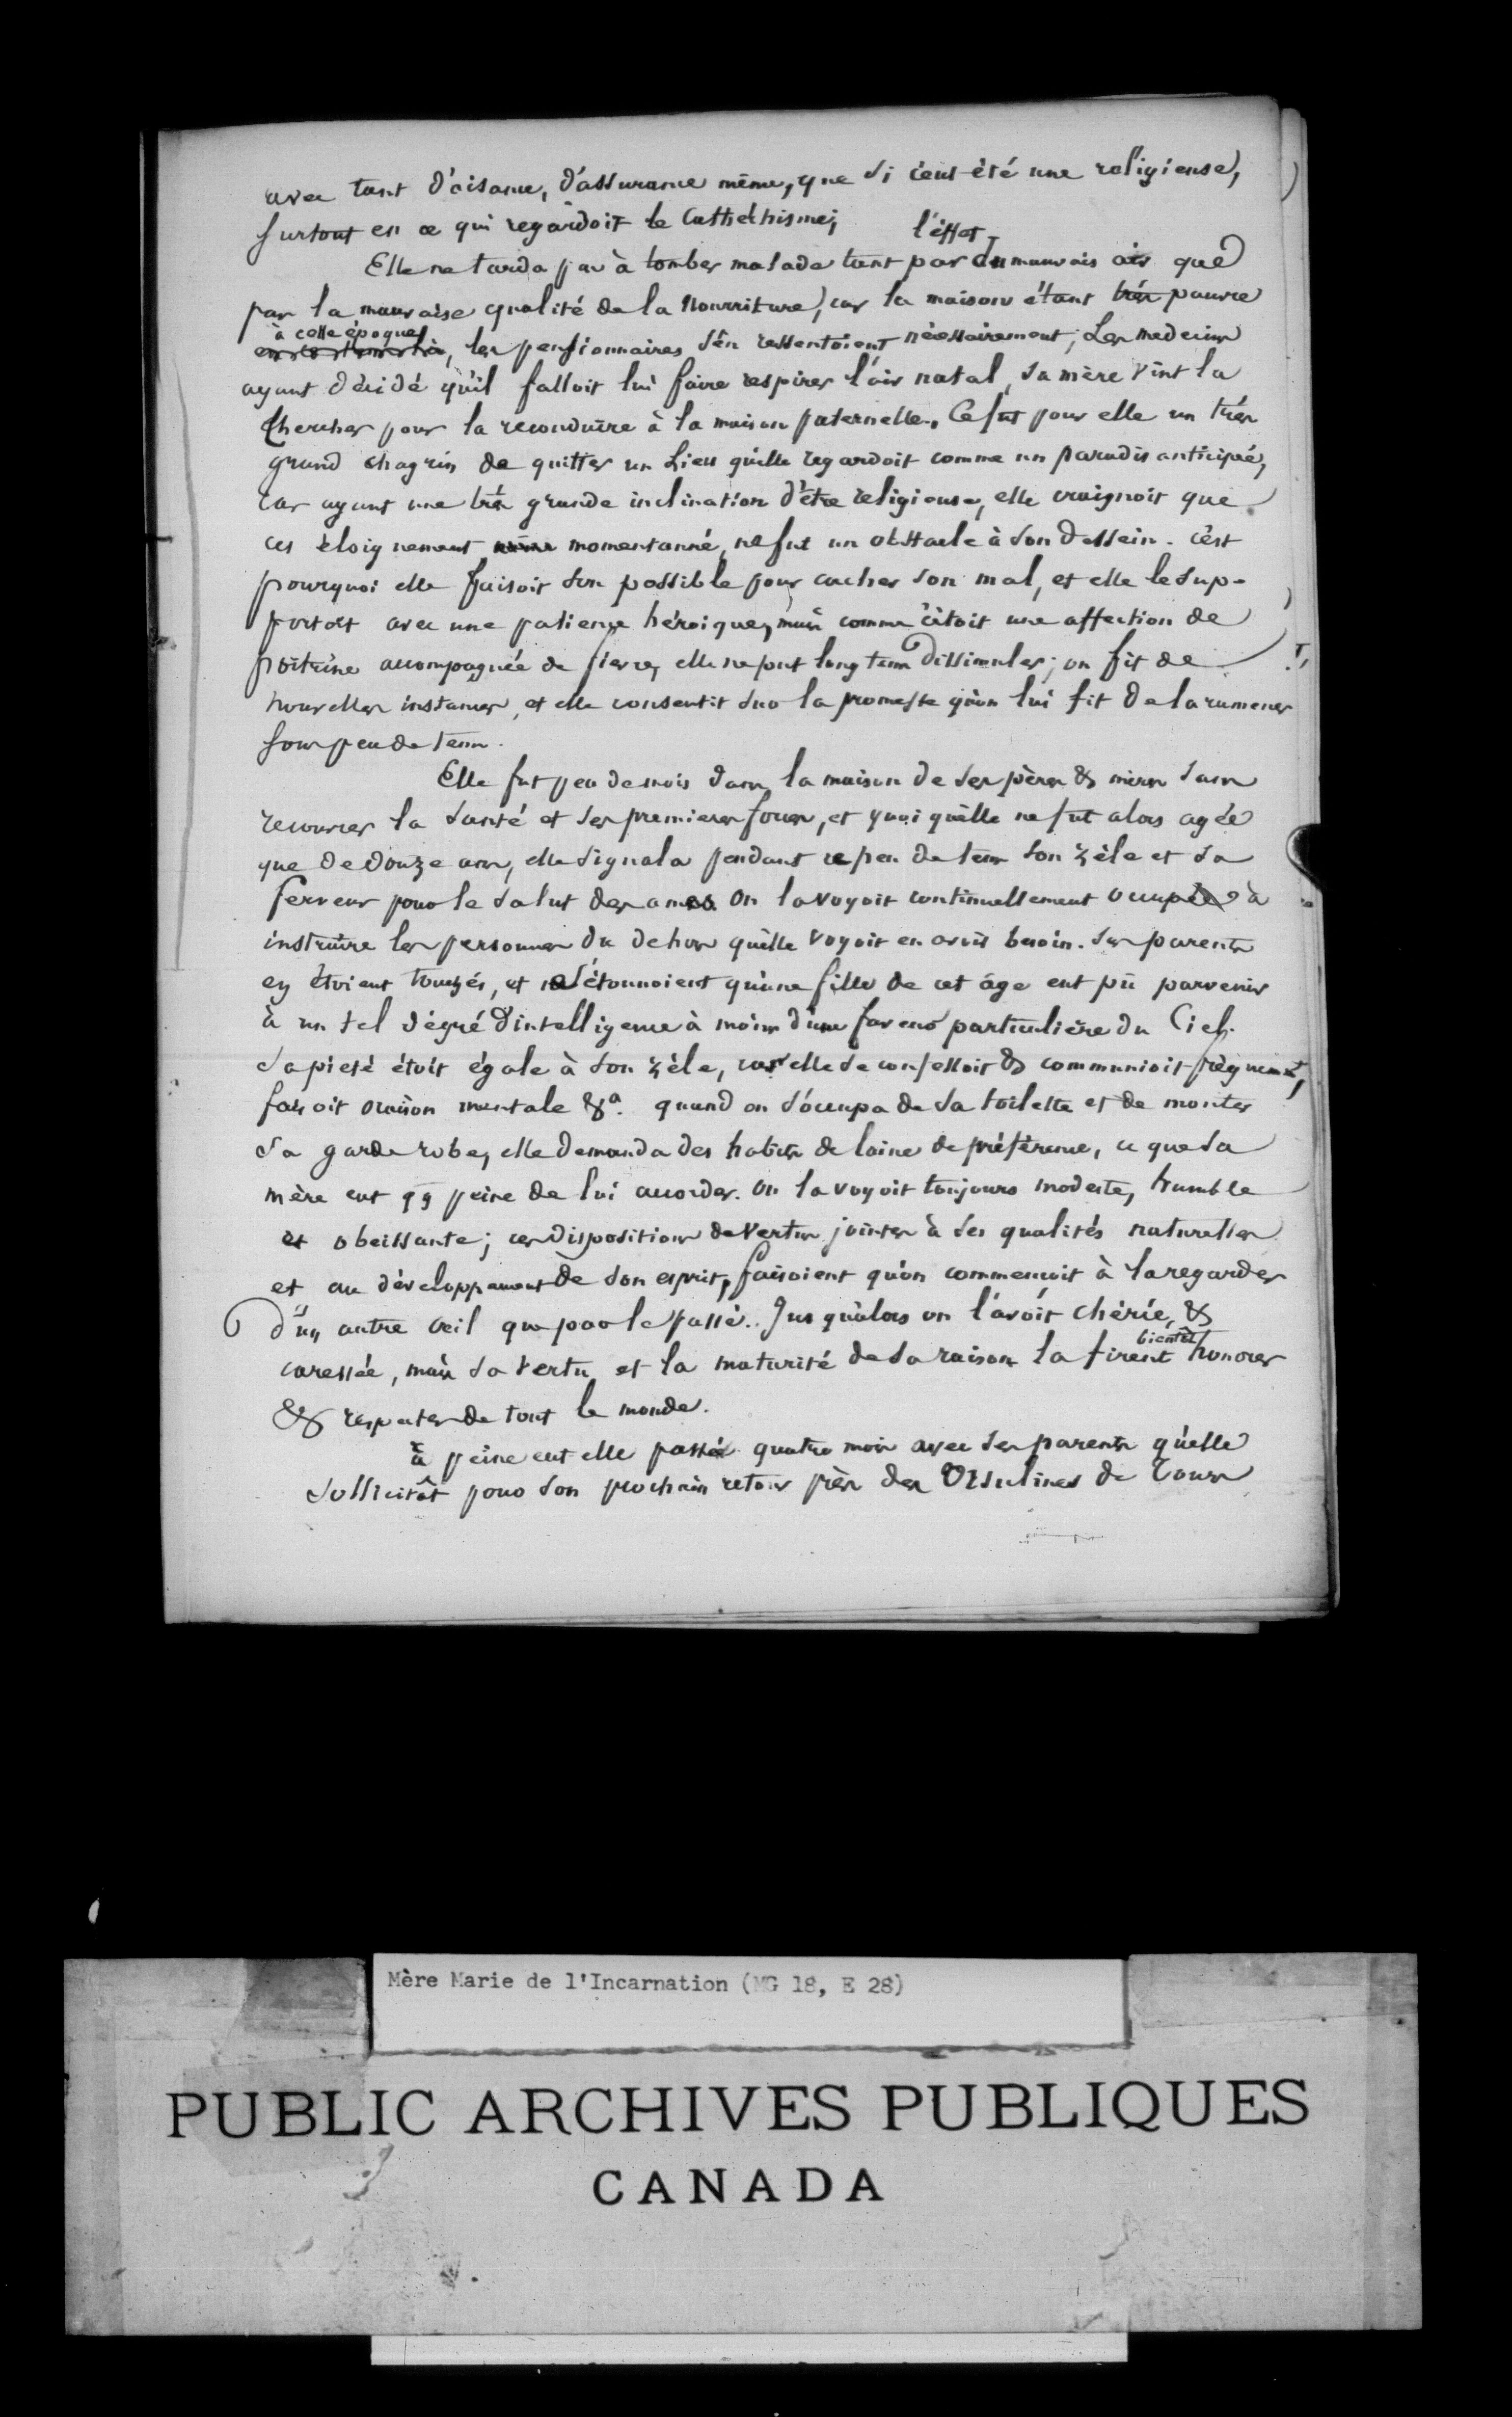 avec tant d'aisance, d'assurance même, que si c'eut été une religieuse,
surtout en ce qui regardoit le Cathéchisme;
Elle ne tarda pas à tomber malade tant par l'effet du mauvais air que
par la mauvaise qualité de la Nourriture, car la maison étant très pauvre
à cette époque, les pensionnaires s'en ressentoient nécessairement; Les medecins
ayant décidé qu'il falloit lui faire respirer l'air natal, sa mère vint la
Chercher pour la reconduire à la maison paternelle. Ce fut pour elle un très
grand chagrin de quitter un Lieu qu'elle regardoit comme un paradis anticipé,
Car ayant une très grande inclination d'être religieuse, elle craignoit que
cet éloignement momentanné, ne fut un obstacle à son dessein. c'est
pourquoi elle faisoit son possible pour cacher son mal, et elle le sup-
portoit avec une patience héroique, mais comme c'étoit une affection de
poitrine accompagnée de fievre, elle ne put long tems dissimuler; on fit de
nouvelles instances, et elle consentit sur la promesse qu'on lui fit de la ramener
sous peu de tems.
Elle fut peu de mois dans la maison de ses pères & mères sans
recouvrer la santé et ses premieres forces, et quoi qu'elle ne fut alors agée
que de douze ans, elle signala pendant ce peu de tems son zèle et sa
ferveur pour le salut des ames. On la voyoit continuellement occupée à
instruire les personnes du dehors qu'elle voyoit en avoir besoin. Ses parents
en étoient touchés, et s'étonnoient qu'une fille de cet âge eut pû parvenir
à un tel dégré d'intelligence à moins d'une faveur particulière du Ciel.
Sa pieté étoit égale à son zèle, car elle se confessoit & communioit fréquemt,
faisoit oraison mentale &a. quand on s'occupa de sa toilette et de monter
sa garde robe, elle demanda des habits de laine de préférence, ce que sa
mère eut qq peine de lui accorder. On la voyoit toujours modeste, humble
et obeissante; ces dispositions de vertus jointes à ses qualités naturelles
et au développement de son esprit, faisoient qu'on commençoit à la regarder
d'un autre oeil que par le passé. Jusqu'alors on l'avoit chérie, &
caressée, mais sa vertu et la maturité de sa raison la firent bientôt honorer
& respecter de tout le monde.
à peine eut elle passé quatre mois avec ses parents qu'elle
sollicitât pour son prochain retour près des Ursulines de Tours
Mère Marie de l'Incarnation (MG 18, E 28)
PUBLIC ARCHIVES PUBLIQUES
CANADA